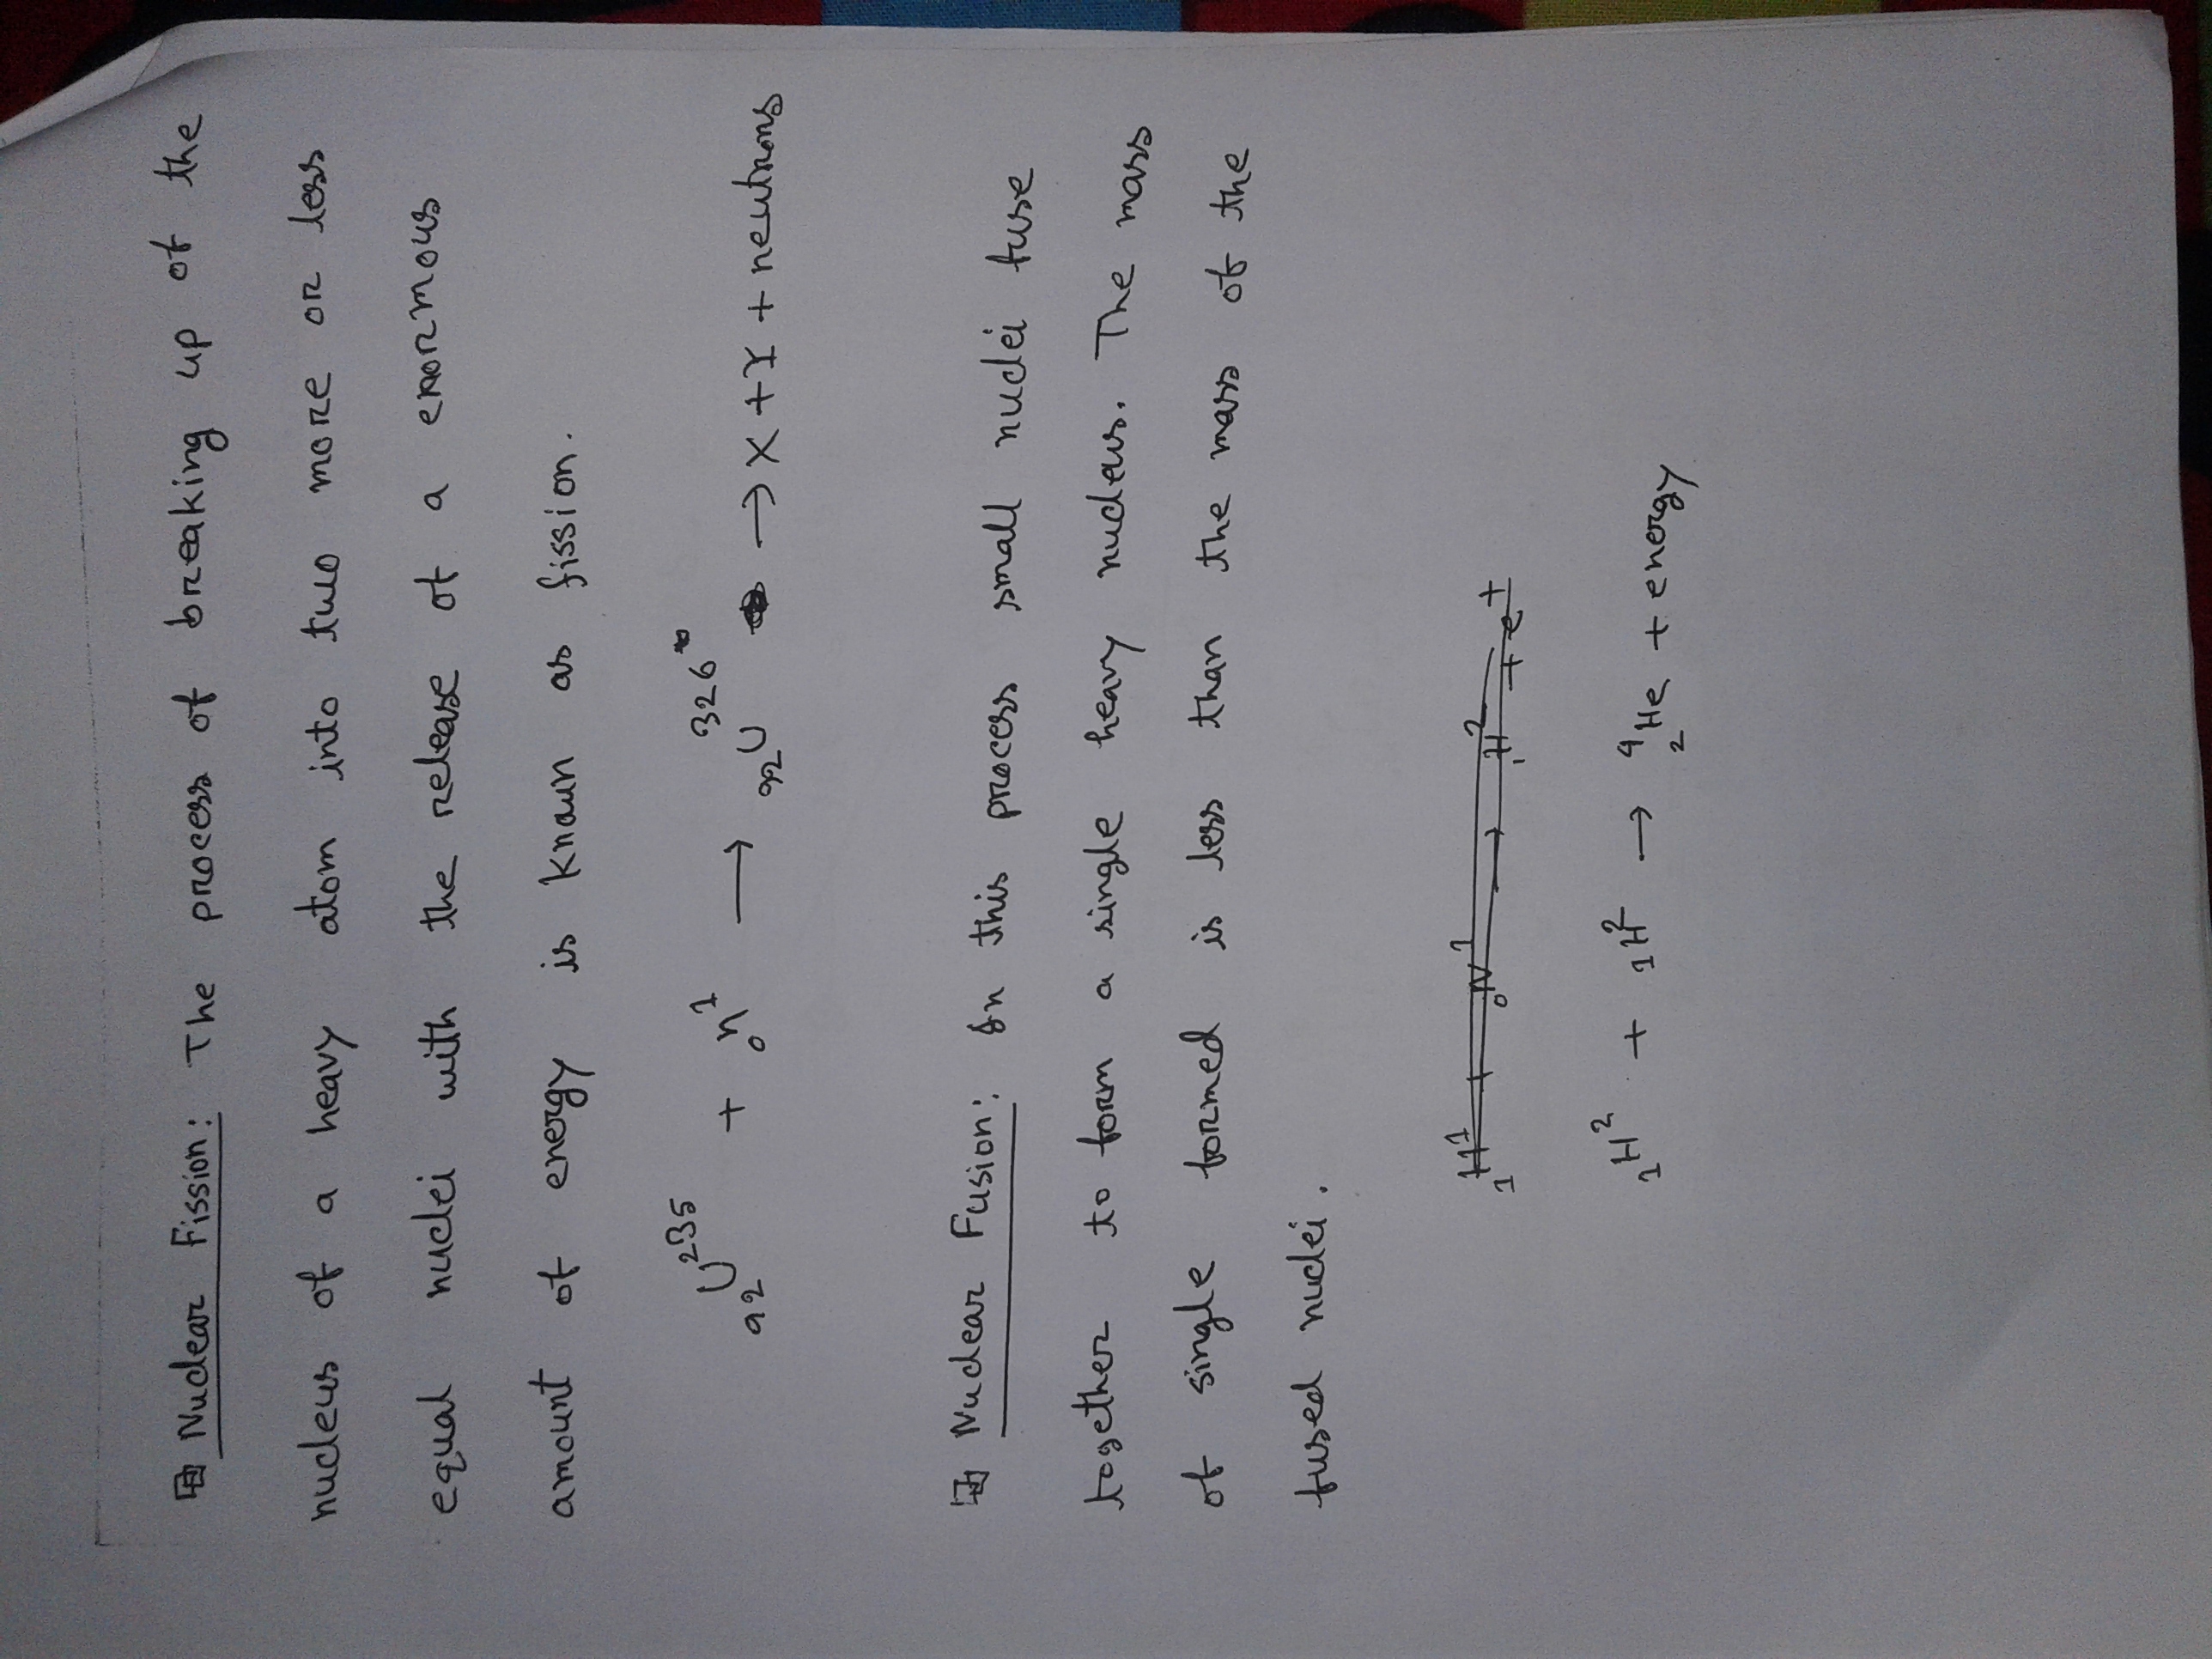 Nuclear Fission: The process of breaking up of the
nucleus of a heavy atom into two more or less
equal nuclei with the release of a enormous
amount of energy is known as fission.
₉₂U²³⁵ + ₀n¹ → ₉₂U³²⁶ → X + Y + neutrons
Nuclear Fusion: In this process small nuclei fuse
together to form a single heavy nucleus. The mass
of single formed is less than the mass of the
fused nuclei.
₁H¹ + ₀N¹ → ₁H² + e⁺
₁H² + ₁H² → ⁴₂He + energy